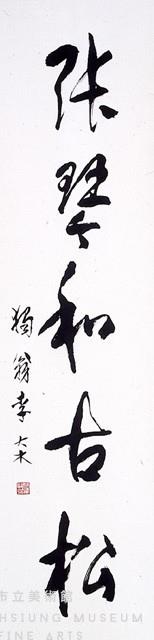 張琴和古松
獨翁李大木
市立美術館
HSIUNG MUSEUM
FINE ARTS